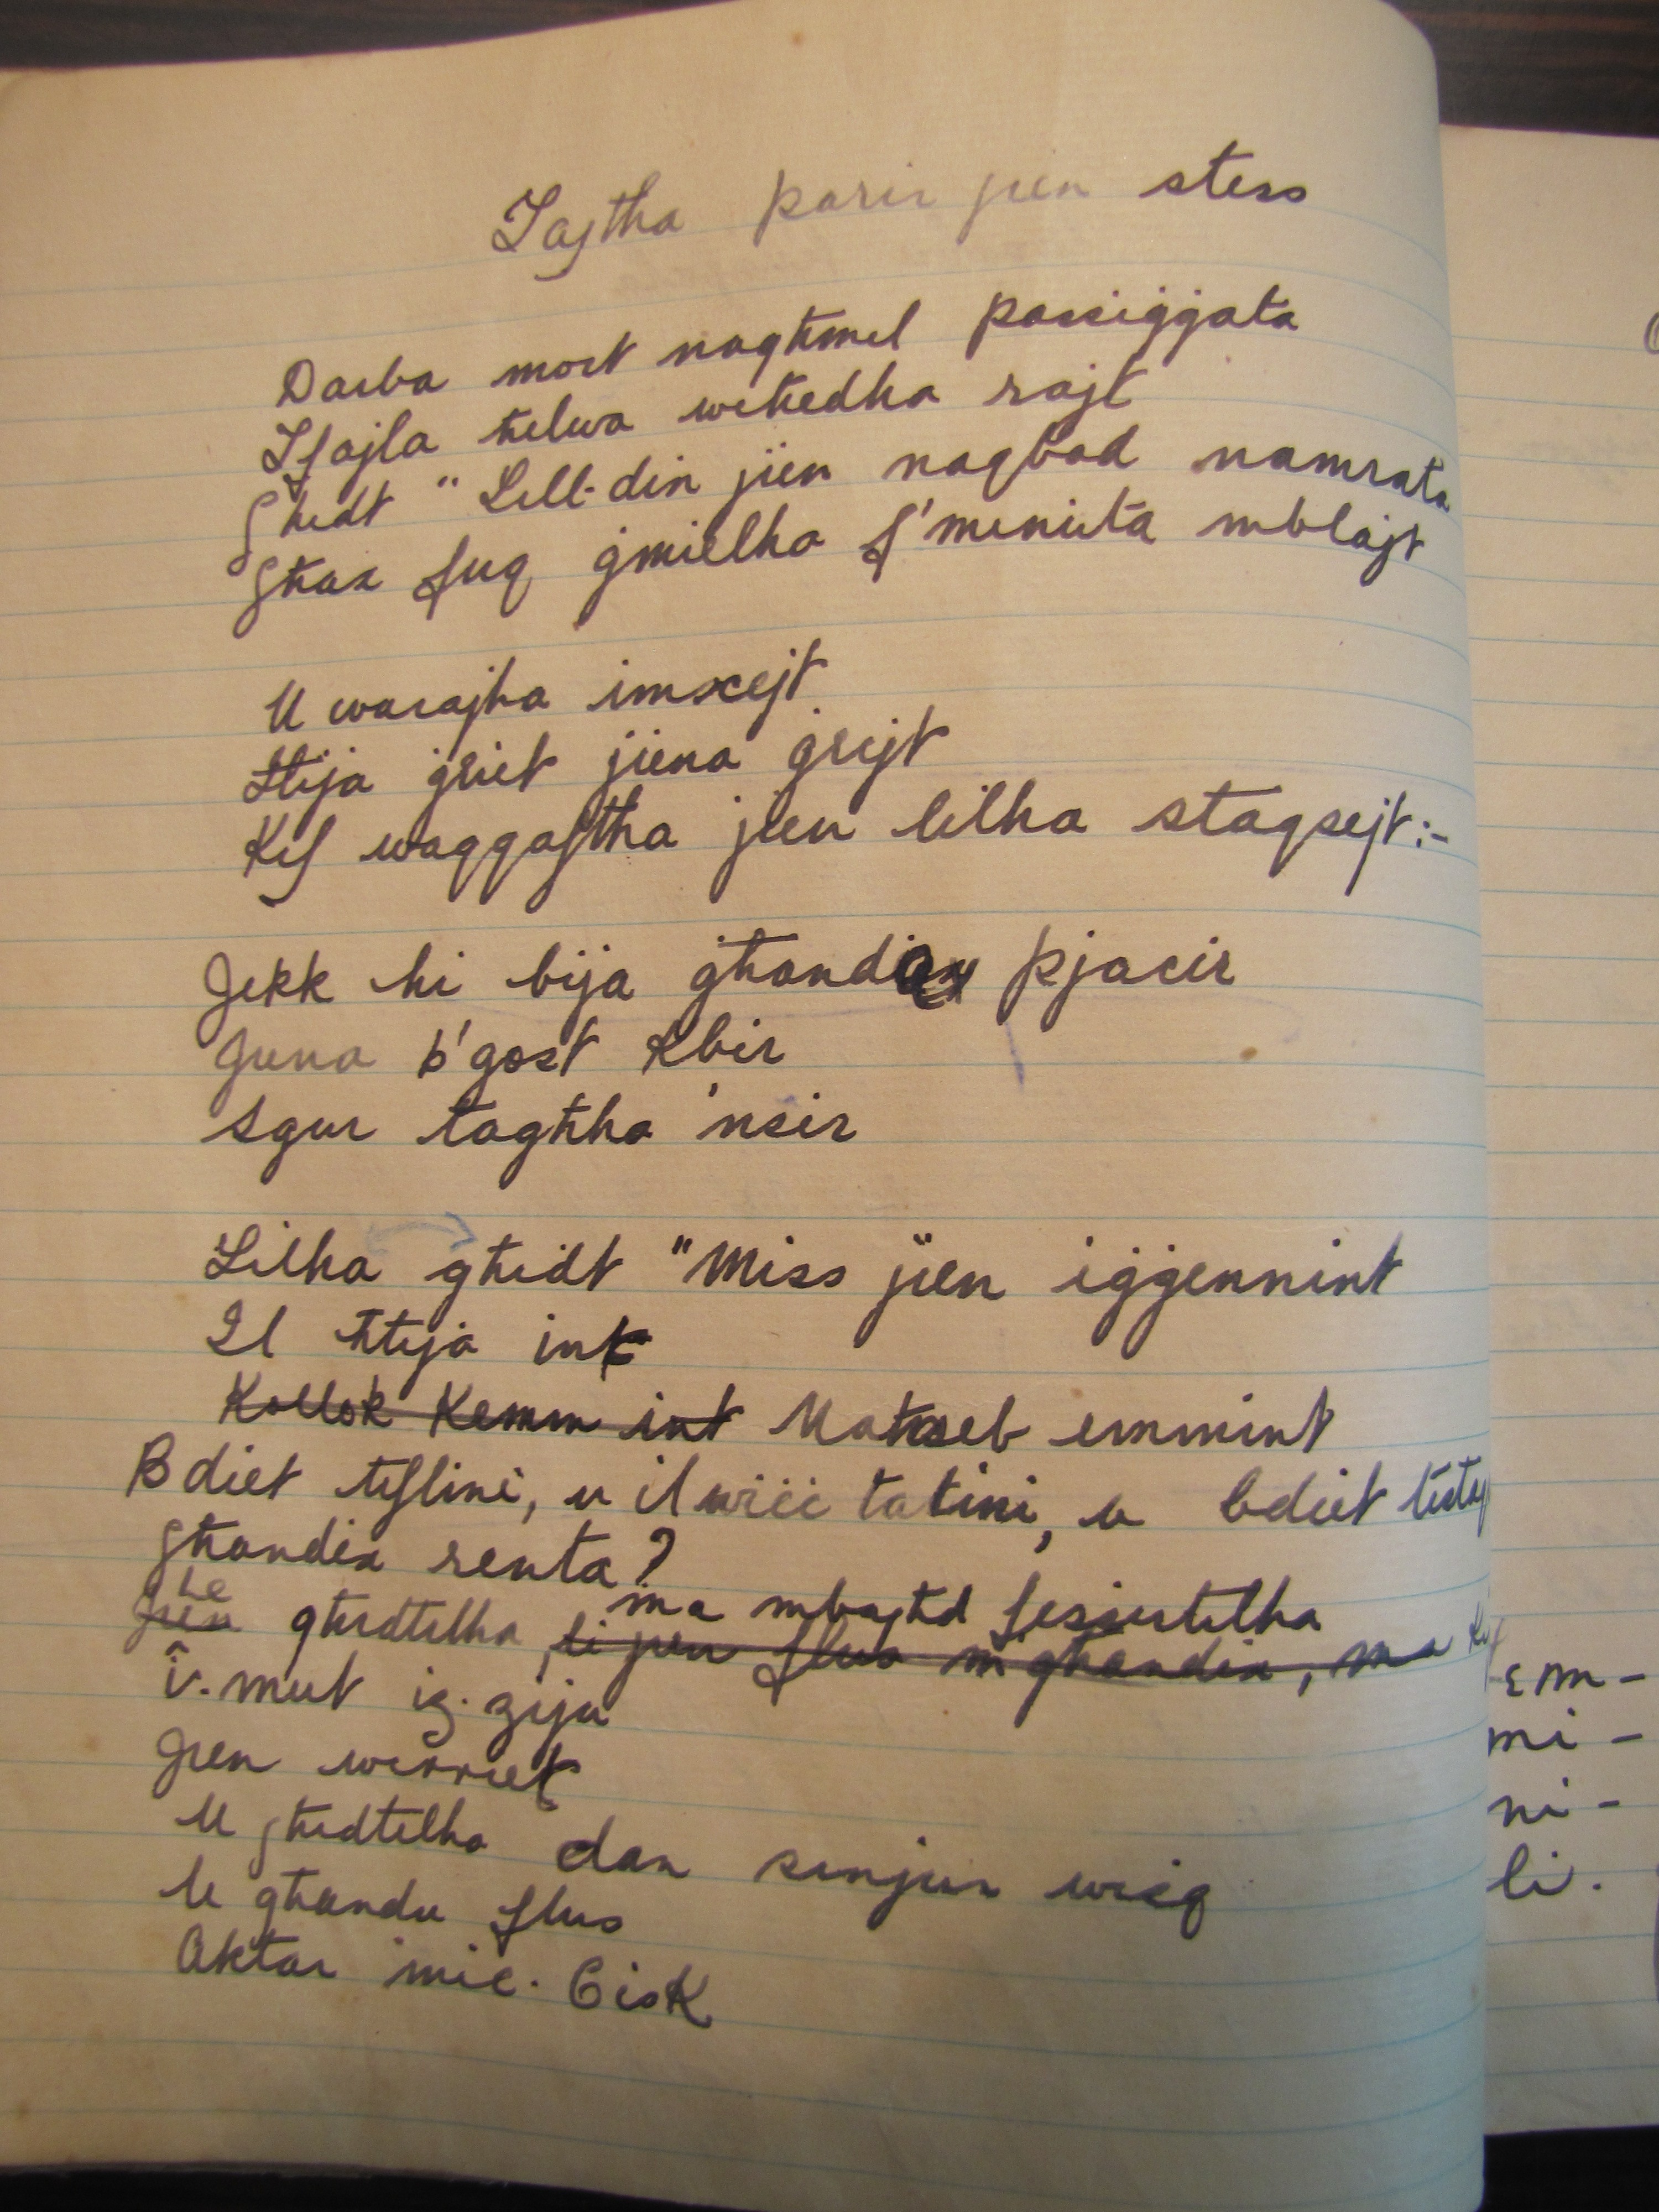 Tajtha parir jien stess
Darba mort nagħmel passiġġata
Tfajla ħelwa weħedha rajt
Għedt "Lill-din jien naqbad namrata
Għax fuq ġmielha f'menuta mblajt
U warajha imxejt
Hija ġriet jiena ġrejt
Kif waqqaftha jien lilha staqsejt:-
Jekk hi bija għandiex pjaċir
Jiena b'gost kbir
Sgur tagħha 'nsir
Lilha għidt "Miss jien iġġennint
Il ħtija int
Kollok Kemm int Maħseb emmint
Bdiet tiflini, u il wiċċ tatini, u bdiet
Għandix renta?
Le
Jien għedtilha, li jien flus m'għandix, ma
ma mbajħd fissirtilha
i. mut iz-ziju
Jien werriet
U għedtilha dan sinjur wisq
U għandu flus
Aktar mic-Cisk
em-
mi-
ni-
li.